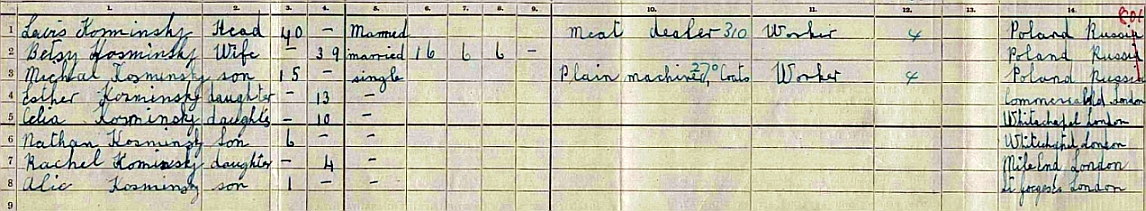 1. 2. 3. 4. 5. 6. 7. 8. 9. 10. 11. 12. 13. 14.
1 Louis Kosminsky Head 40 – Married Meat dealer 310 Worker 4 Poland Russia
2 Betsy Kosminsky Wife – 39 married 16 6 6 – Poland Russia
3 Michal Kosminsky son 15 – single Plain machiner, 270 Coats Worker 4 Poland Russia
4 Esther Kosminsky daughter – 13 – Commercial Rd London
5 Celia Kosminsky daughter – 10 – Whitechapel London
6 Nathan Kosminsky Son 6 – – Whitechapel London
7 Rachel Kominsky daughter – 4 – Mile End London
8 Alic Kosminsky son 1 – – St Georges London
9